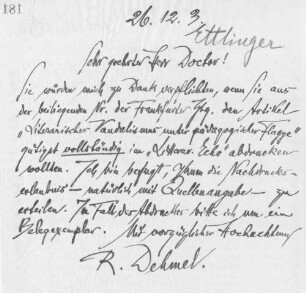 181
26. 12. 3.
Ettlinger
Sehr geehrter Herr Doctor!
Sie würden mich zu Dank verpflichten, wenn Sie aus
der beiliegenden Nr. der Frankfurter Ztg. den Artikel
„Literarischer Vandalismus unter pädagogischer Flagge“
gütigst vollständig im „Litterar. Echo“ abdrucken
wollten. Ich bin befugt, Ihnen die Nachdrucks-
erlaubnis – natürlich mit Quellenangabe – zu
erteilen. Im Fall des Abdruckes bitte ich um ein
Belegexemplar. Mit vorzüglicher Hochachtung
R. Dehmel.